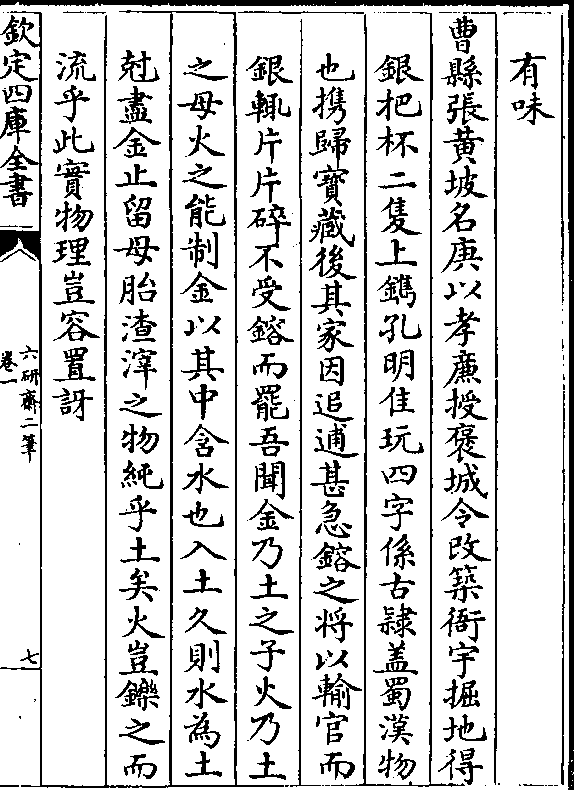 有味
曹縣張黄坡名庚以孝廉授褒城令改築衙宇掘地得
銀把杯二隻上鐫孔明佳玩四字係古隷盖蜀漢物
也携歸寳藏後其家因追逋甚急鎔之将以輸官而
銀輒片片碎不受鎔而罷吾聞金乃土之子火乃土
之母火之能制金以其中含水也入土久則水為土
尅盡金止留母胎渣滓之物純乎土矣火豈鑠之而
流乎此實物理豈容置訝
欽定四庫全書
六研齋二筆
卷一
七